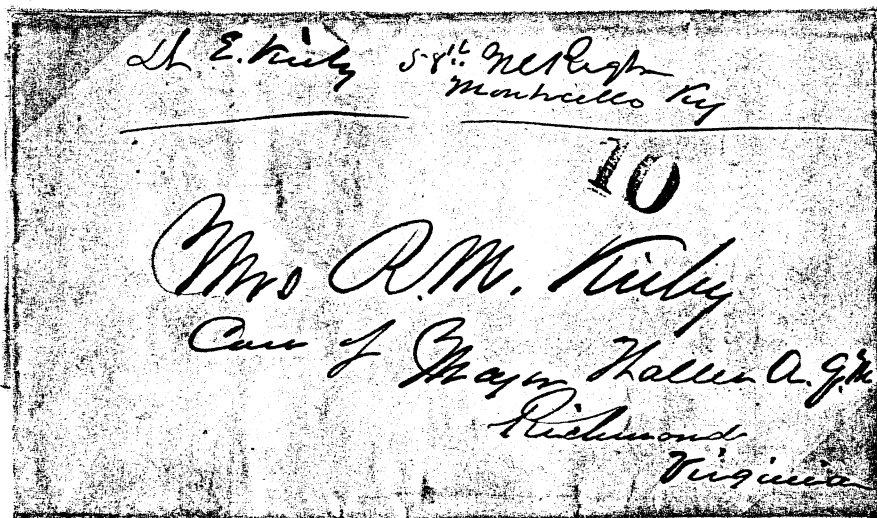 Lt E. Kirby 58th NC Regt
Monticello Ky
10
Mrs R. M. Kirby
Care of Major Thallen A. Q. M
Richmond
Virginia